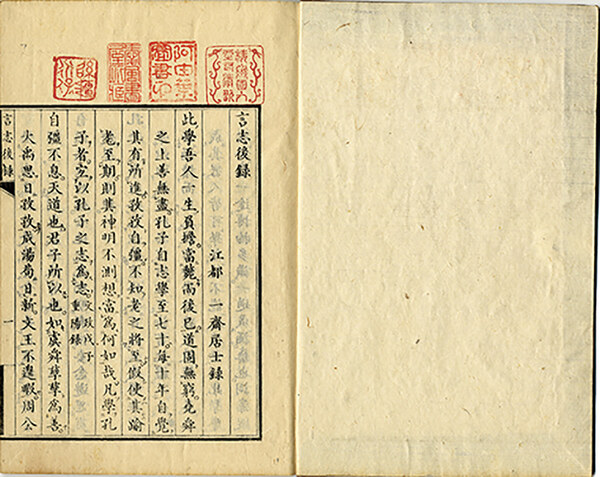 言志後録
江都 一齋居士録
此學吾人一生負擔當斃而後已道固無窮堯舜
之上善無盡孔子自志學至七十每十年自覺
其有所進孜孜自彊不知老之將至假使其踰
耄至期則其神明不測想當爲何如哉凡學孔
子者宜以孔子之志爲志
文政戊子
重陽録
自彊不息天道也君子所以也如虞舜孳孳爲善
大禹思日孜孜成湯苟日新文王不遑暇周公
言志後録
一